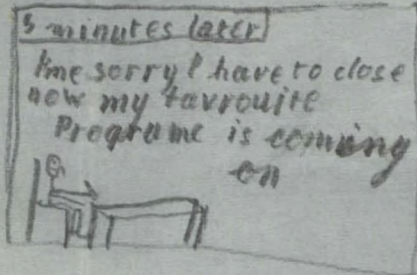 5 minutes later
Ime sorry I have to close
now my favrouite
Programe is coming
on